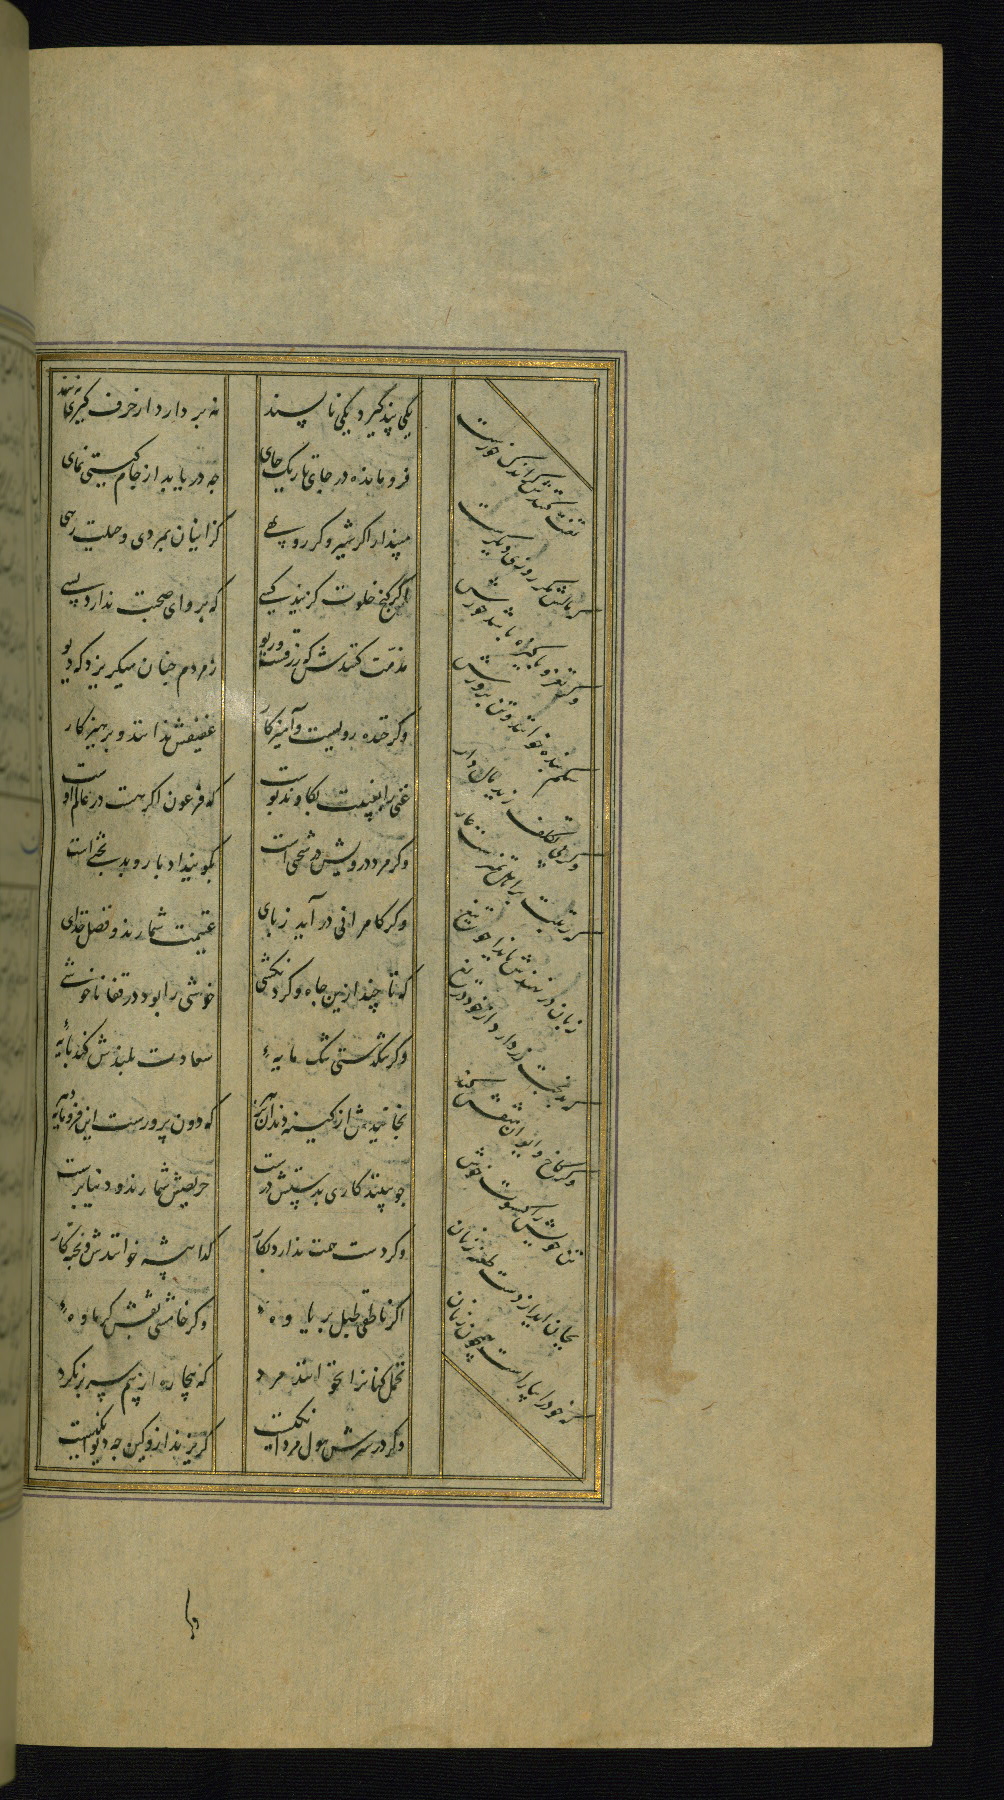 یکی پند گیرد یکی ناپسند نه بردارد از حرف گیری به پند
فرومانده در جای تاریک جای چه دریابد از جام گیتی نمای
مپندار اگر شیر و کر روبهی کز اینان بمردی و حیلت رهی
اگر کنج خلوت کزیند کسی که پروای صحبت ندارد بسی
مذمّت کنندش که زرقست و ریو ز مردم چنان میکریزد که دیو
وکر خنده رویست و آمیزکار عفیفش ندانند و پرهیزکار
غنی را بغیبت بکاوند پوست که فرعون اکر هست در عالم اوست
وکر مرد درویش در سختی است بکویند ادبار و بدبختی است
وکر کامرانی درآید ز پای غنیمت شمارند و فضل خدای
که تا چند ازین جاه و کردنکشی خوشی را بود در قفا ناخوشی
وکر تنکدستی تنک مایهٔ سعادت بلندش کند پایهٔ
بخایندش از کینه دندان بزهر که دون پرورست این فرومایه دهر
چو بینند کاری بدستش درست حریصش شمارند و دنیا پرست
وکر دست همت ندارد بکار کدا پیشه خوانندش و پخته کار
اکر ناطقی طبل پر یاوهٔ وکر خامشی نقش کرماوهٔ
تحمل کنانرا نخوانند مرد که بیچاره از بیم سر برنکرد
وکر در سرش هول مردانکیست کریزند ازو کین چه دیوانکیست
تعنت کنندش کر اندک خورست
که مالش مکر روزی دیکرست
وکر نغز و پاکیزه باشد خورش
شکم بنده خوانند و تن پرورش
وکر بی تکلف زید مال دار
که زینت بر اهل تمیزست عار
زبان در نهندش بایذا چو تیغ
که بدبخت زر دارد از خود دریغ
وکر کاخ و ایوان منقش کند
تن خویش را کسوت خوش
بجان آید از دست طعنه زنان
که خود را بیاراست همچون زنان